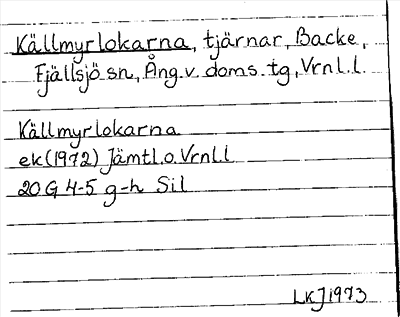 Källmyrlokarna, tjärnar, Backe,
Fjällsjö sn, Ång.v. doms.tg, Vrnl.l.
Källmyrlokarna
ek (1972) Jämtl.o.Vrnl.l
20 G 4-5 g-h Sil
LKJ 1973